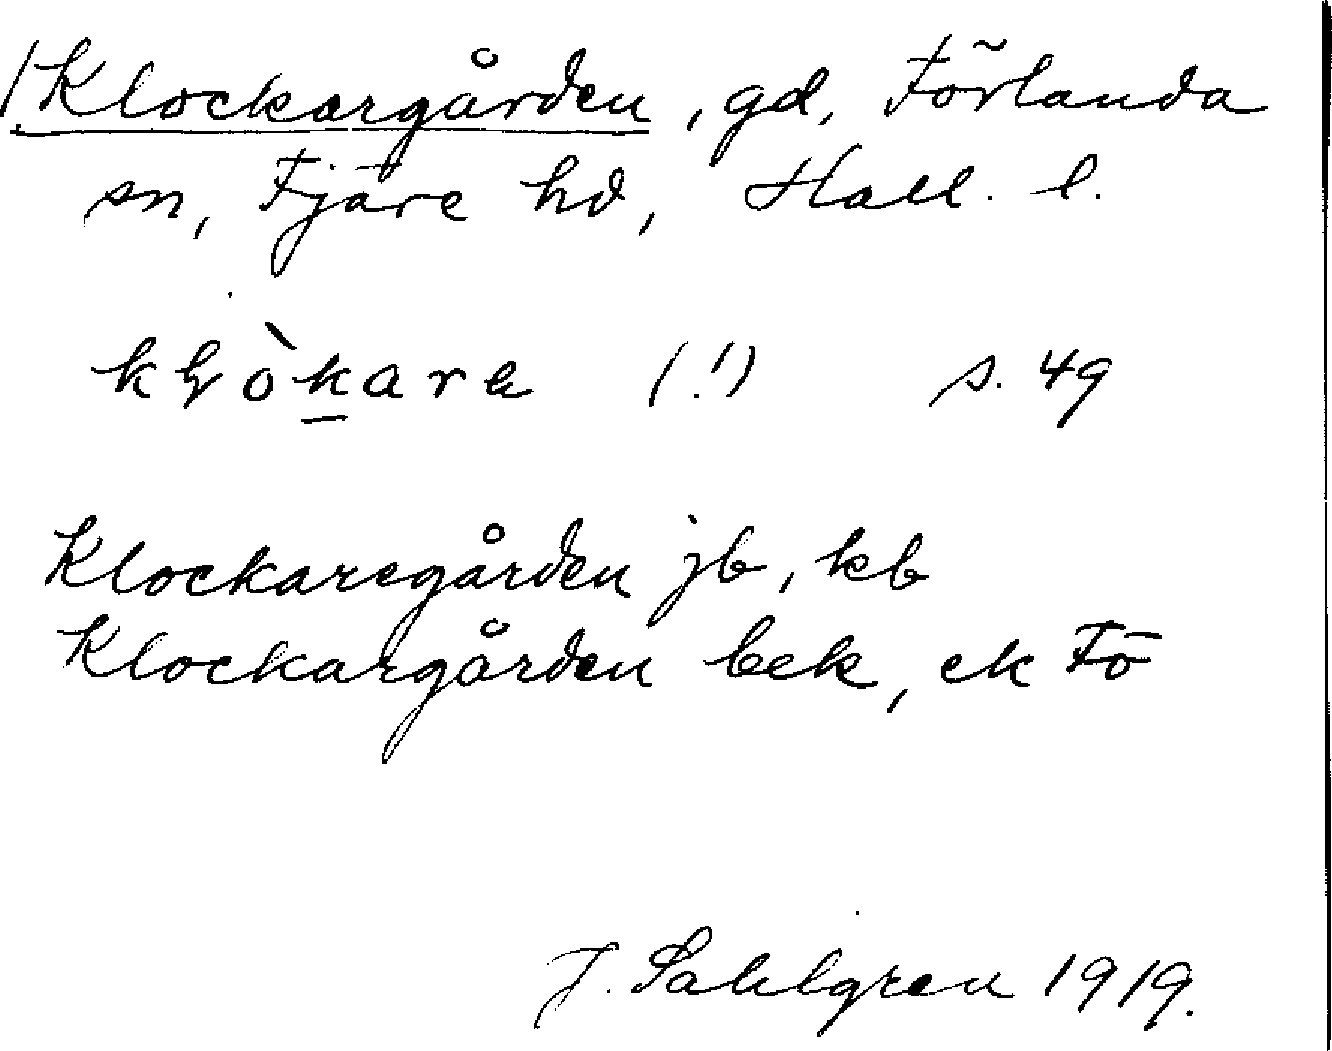 /Klockargården, gd, Förlanda
sn, Fjäre hd, Hall. l.
kḷòkarɐ (!) s. 49
Klockaregården jb, kb
Klockargården bek, ek Fö
J. Sahlgren 1919.